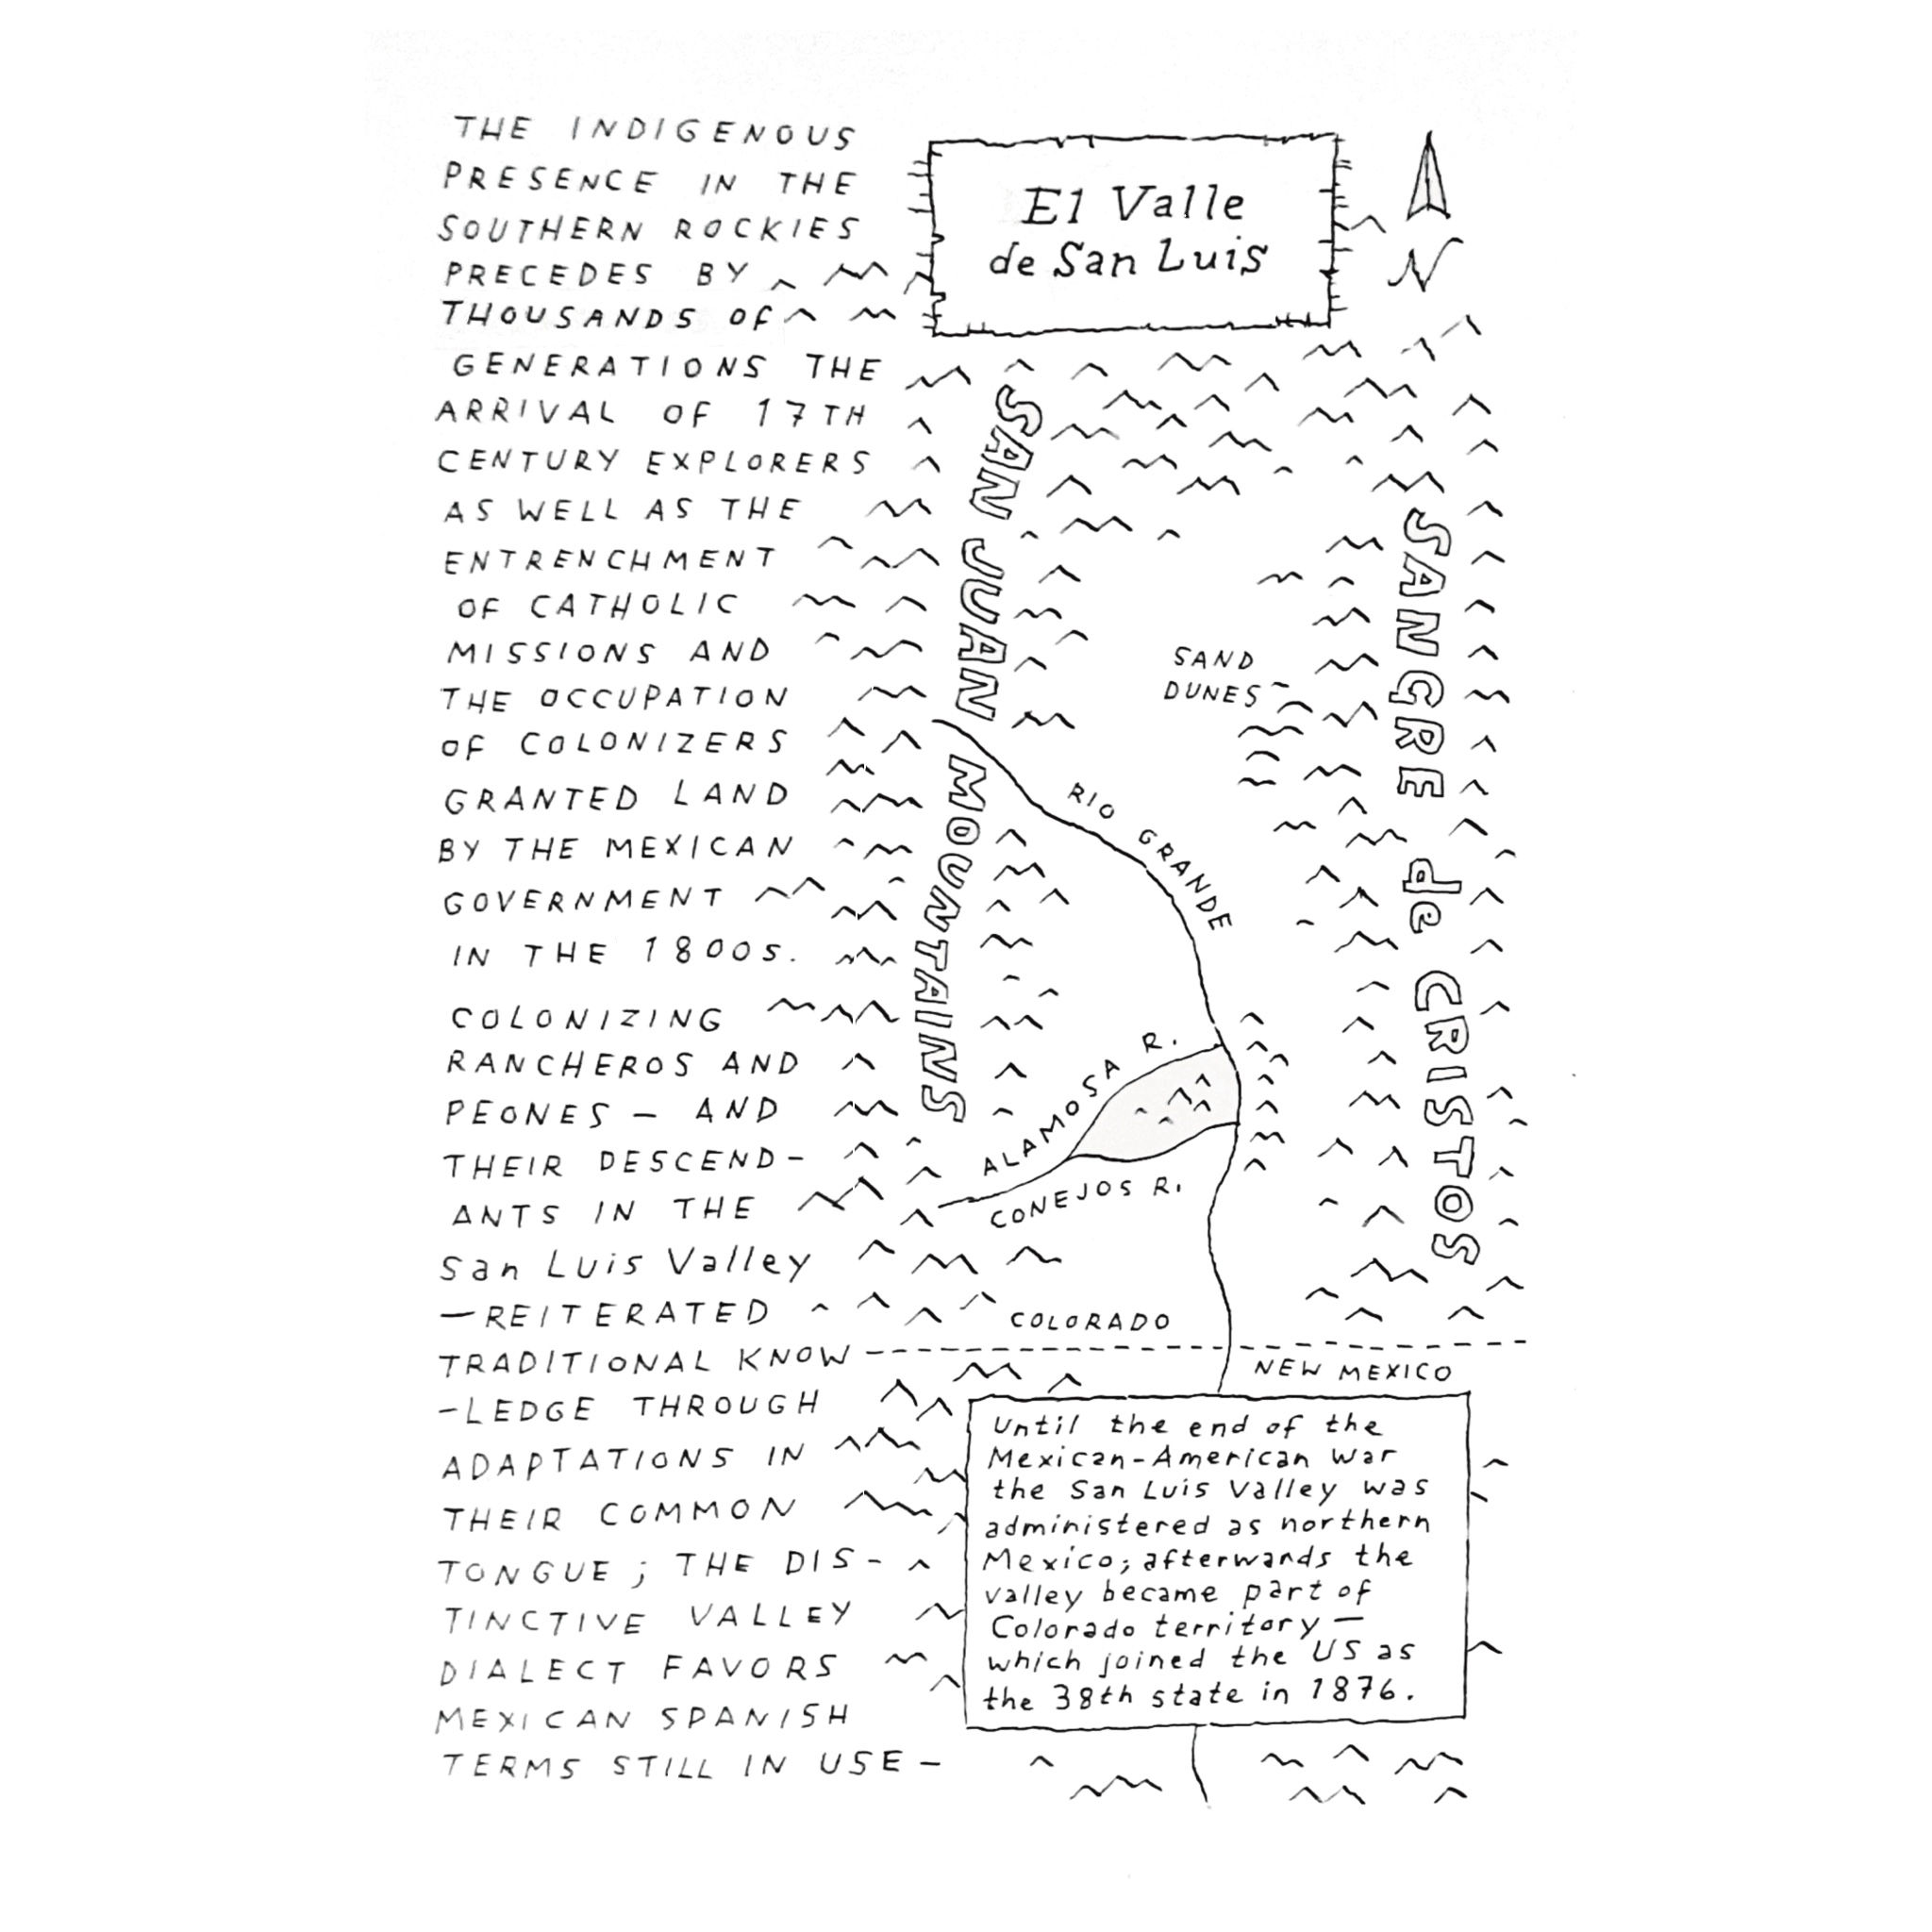 THE INDIGENOUS
PRESENCE IN THE
SOUTHERN ROCKIES
PRECEDES BY
THOUSANDS OF
GENERATIONS THE
ARRIVAL OF 17TH
CENTURY EXPLORERS
AS WELL AS THE
ENTRENCHMENT
OF CATHOLIC
MISSIONS AND
THE OCCUPATION
OF COLONIZERS
GRANTED LAND
BY THE MEXICAN
GOVERNMENT
IN THE 1800s.
COLONIZING
RANCHEROS AND
PEONES – AND
THEIR DESCEND-
ANTS IN THE
San Luis Valley
—REITERATED
TRADITIONAL KNOW
-LEDGE THROUGH
ADAPTATIONS IN
THEIR COMMON
TONGUE; THE DIS-
TINCTIVE VALLEY
DIALECT FAVORS
MEXICAN SPANISH
TERMS STILL IN USE –
El Valle
de San Luis
N
SAN JUAN MOUNTAINS
SANGRE de CRISTOS
SAND
DUNES
RIO GRANDE
ALAMOSA R.
CONEJOS R.
COLORADO
NEW MEXICO
Until the end of the
Mexican-American War
the San Luis Valley was
administered as northern
Mexico; afterwards the
valley became part of
Colorado territory —
which joined the US as
the 38th state in 1876.